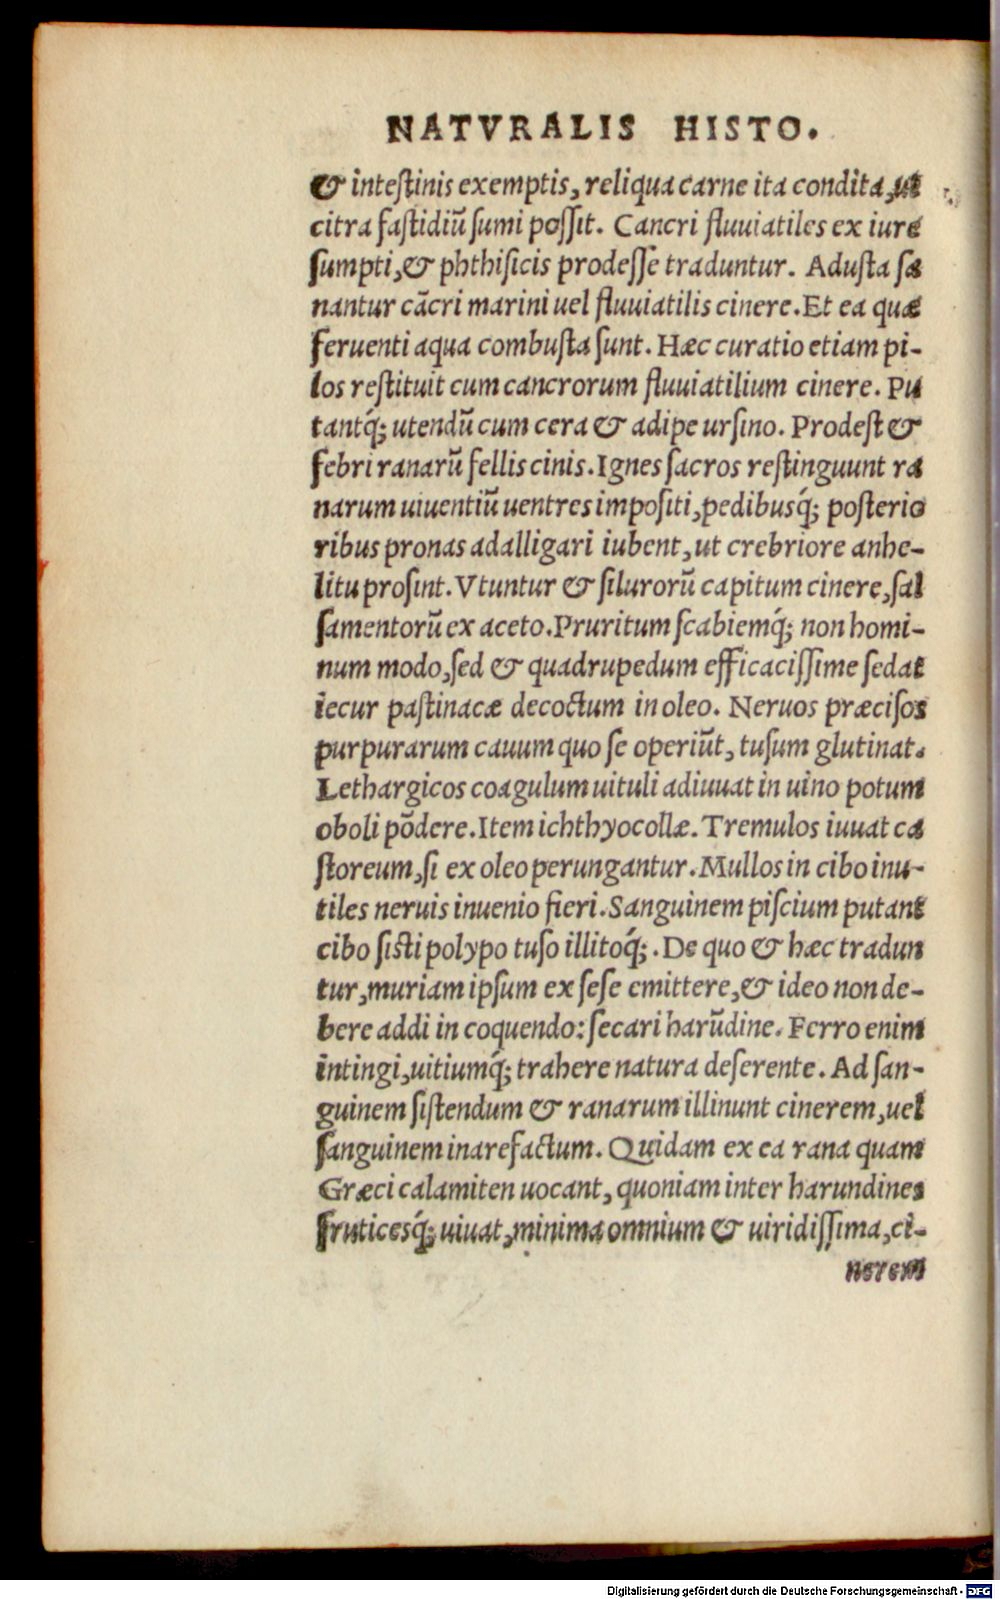 NATVRALIS HISTO.
& intestinis exemptis, reliqua carne ita condita, ut
citra fastidiū sumi possit. Cancri fluuiatiles ex iure
sumpti, & phthisicis prodesse traduntur. Adusta sa
nantur cācri marini uel fluuiatilis cinere. Et ea quæ
feruenti aqua combusta sunt. Hæc curatio etiam pi-
los restituit cum cancrorum fluuiatilium cinere. Pu
tantq́; utendū cum cera & adipe ursino. Prodest &
febri ranarū fellis cinis. Ignes sacros restinguunt ra
narum uiuentiū uentres impositi, pedibusq́; posterio
ribus pronas adalligari iubent, ut crebriore anhe-
litu prosint. Vtuntur & silurorū capitum cinere, sal
samentorū ex aceto. Pruritum scabiemq́; non homi-
num modo, sed & quadrupedum efficacissime sedat
iecur pastinacæ decoctum in oleo. Neruos præcisos
purpurarum cauum quo se operiūt, tusum glutinat.
Lethargicos coagulum uituli adiuuat in uino potum
oboli pōdere. Item ichthyocollæ. Tremulos iuuat ca
storeum, si ex oleo perungantur. Mullos in cibo inu-
tiles neruis inuenio fieri. Sanguinem piscium putant
cibo sisti polypo tuso illitoq́;. De quo & hæc tradun
tur, muriam ipsum ex sese emittere, & ideo non de-
bere addi in coquendo: secari harūdine. Ferro enim
intingi, uitiumq́; trahere natura deserente. Ad san-
guinem sistendum & ranarum illinunt cinerem, uel
sanguinem inarefactum. Quidam ex ea rana quam
Græci calamiten uocant, quoniam inter harundines
fruticesq́; uiuat, minima omnium & uiridissima, ci-
nerem
Digitalisierung gefördert durch die Deutsche Forschungsgemeinschaft - DFG